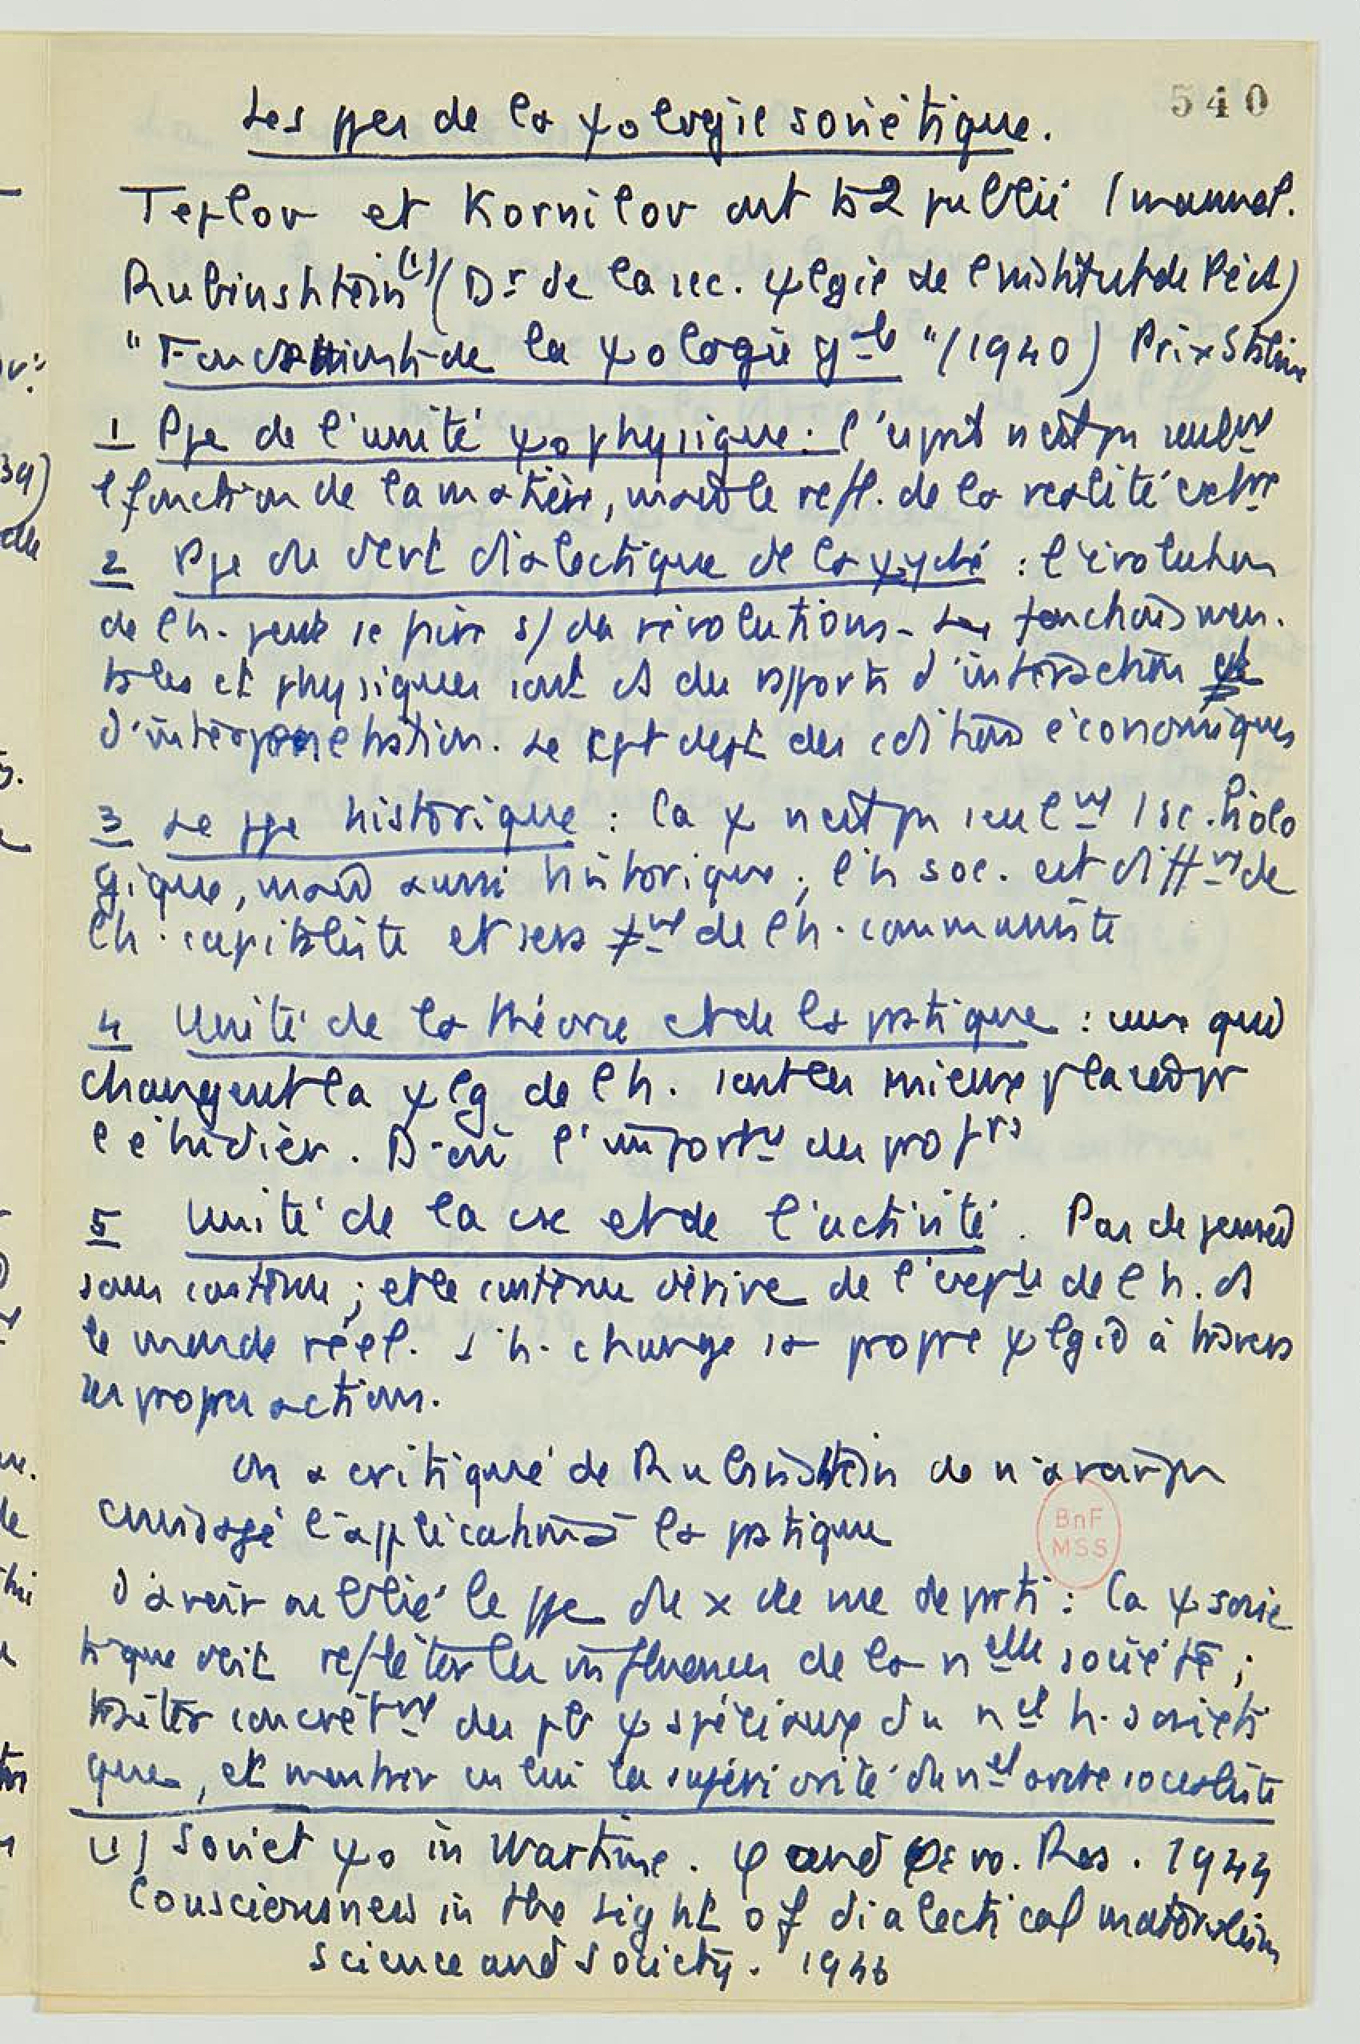 540
Les ppes de la ψologie soviétique.
Teplov et Kornilov ont ts 2 publié 1 manuel.
Rubinshtein (1) (Dr de la sec. ψlgie de l'institut de Péd)
"Fondements de la ψologie gale" (1940) Prix Staline
1 Ppe de l'unité ψophysique : l'esprit n'est pas seulemt
1 fonction de la matière, mais le refl. de la réalité extre
2 Ppe du devt dialectique de la psyché : l'évolution
de l'h. peut se faire s/ des révolutions - Les fonctions men.
tales et physiques sont ds des rapports d'intéraction et
d'interpénétration. Le cpt dépt des cditions économiques
3 Le ppe historique : la ψ n'est pas seulemt 1 sc. biolo
gique, mais aussi historique ; l'h soc. est difft de
l'h. capitaliste et sera ≠nt de l'h. communiste
4 Unité de la théorie et de la pratique : ceux qui
changent la ψlg de l'h. sont les mieux placés pr
l'étudier. D'où l'importce des profrs
5 Unité de la csc et de l'activité. Pas de pensée
sans contenu ; et le contenu dérive de l'expce de l'h. ds
le monde réel. L'h. change sa propre ψlgie à travers
ses propres actions.
On a critiqué de Rubinshtein de n'avoir pas
envisagé l'application à la pratique
d'avoir oublié le ppe du de parti : la ψ sovié
tique doit refléter les influences de la nelle société ;
traiter concrètmt des pb ψ spéciaux du nel h. soviéti
que, et montrer en lui la supériorité du nel ordre socialiste
(1) Soviet ψo in Wartime. φ and φeno. Res. 1944
Consciousness in the light of dialectical materialism
Science and Society. 1946
BnF
MSS